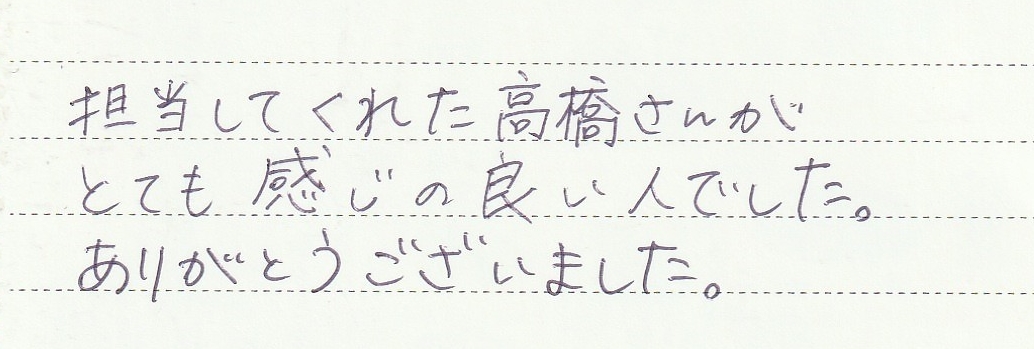 担当してくれた高橋さんが
とても感じの良い人でした。
ありがとうございました。